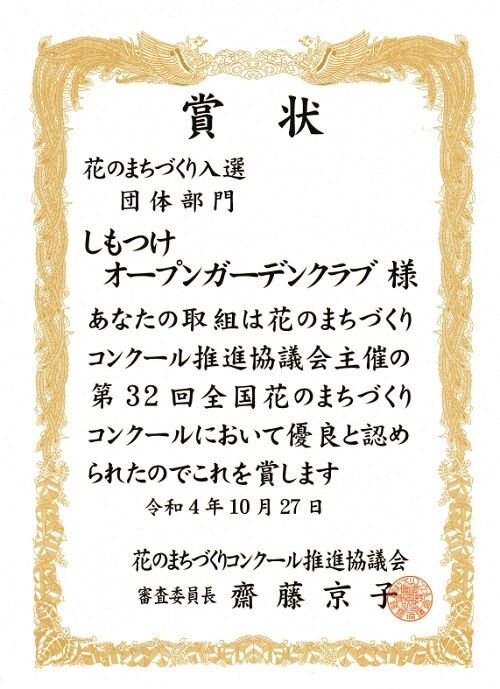 賞状
花のまちづくり入選
団体部門
しもつけ
オープンガーデンクラブ 様
あなたの取組は花のまちづくり
コンクール推進協議会主催の
第32回全国花のまちづくり
コンクールにおいて優良と認め
られたのでこれを賞します
令和4年10月27日
花のまちづくりコンクール推進協議会
審査委員長 齋藤京子